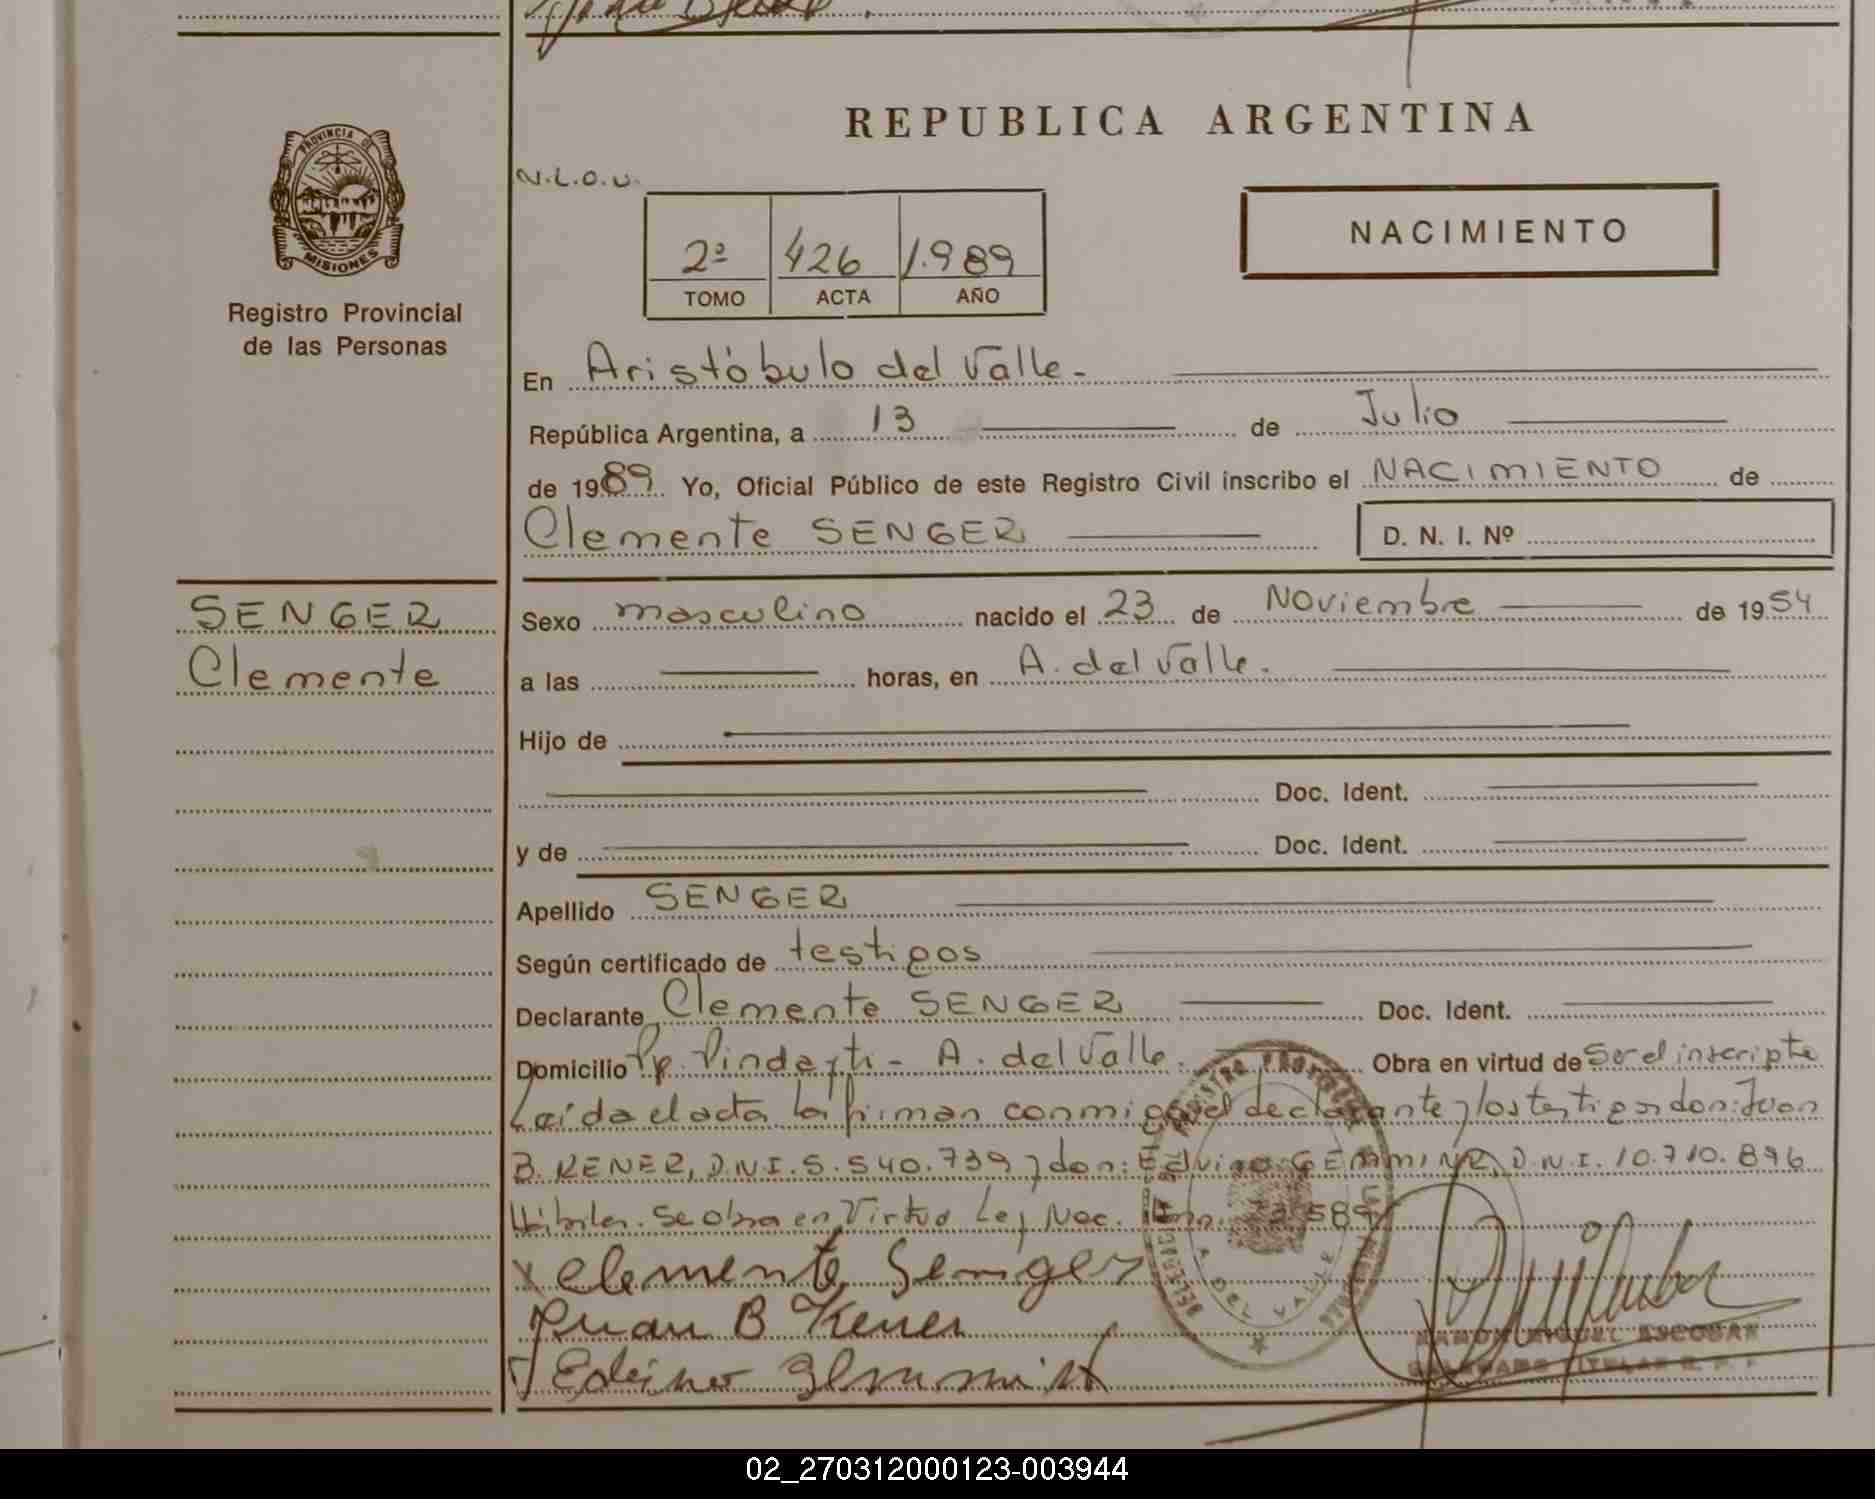 REPUBLICA ARGENTINA
PROVINCIA DE
MISIONES
Registro Provincial
de las Personas
N.L.O.U.
NACIMIENTO
2º 426 1.989
TOMO ACTA AÑO
En Aristóbulo del Valle.-
República Argentina, a 13 de Julio
de 1989. Yo, Oficial Público de este Registro Civil inscribo el NACIMIENTO de
Clemente SENGER D. N. I. Nº
SENGER
Clemente
Sexo masculino nacido el 23 de Noviembre de 1954
a las horas, en A. del Valle.
Hijo de
Doc. Ident.
y de Doc. Ident.
Apellido SENGER
Según certificado de testigos
Declarante Clemente SENGER Doc. Ident.
Domicilio A. del Valle. Obra en virtud de ser el inscripto
Leída el acta la firman conmigo el declarante y los testigos don: Juan
B. KENER, D.N.I. 5.540.739 y don: D.N.I. 10.710.896
Hábiles. Se obra en Virtud Ley Nac.
Clemente Senger
Juan B Kener
A. DEL VALLE
RAMON MIGUEL ESCOBAR
02_270312000123-003944